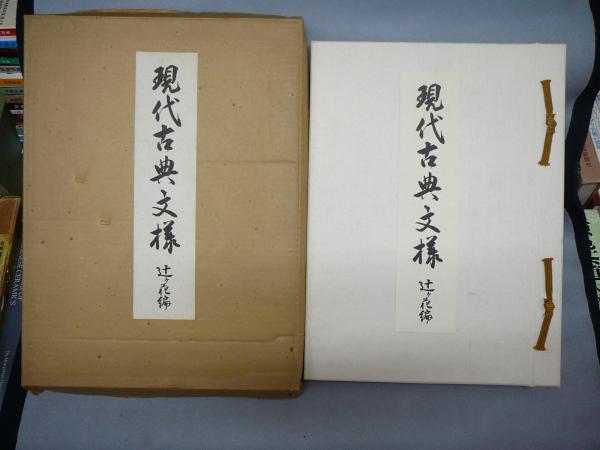 現代古典文様
辻ヶ花編
現代古典文様
辻ヶ花編